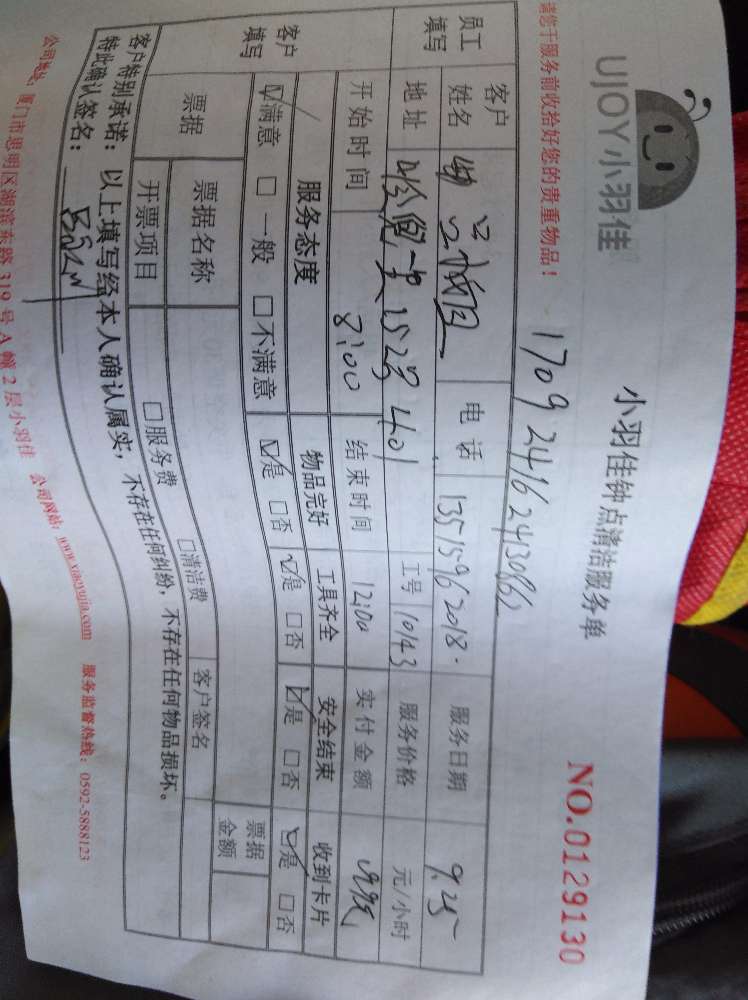 UJOY小羽佳
小羽佳钟点清洁服务单
NO.0129130
请您于服务前收拾好您的贵重物品！
1709 2416 2430862
员工填写 客户姓名 电话 13515962018. 服务日期 9.25
地址 一里152号401 工号 10143 服务价格 元/小时
开始时间 8:00 结束时间 12:00 实付金额
客户填写 服务态度 物品完好 工具齐全 安全结束 收到卡片
☑满意 □一般 □不满意 ☑是 □否 ☑是 □否 ☑是 □否 ☑是 □否
票据 票据名称 票据金额
开票项目 □服务费 □清洁费 客户签名
客户特别承诺：以上填写经本人确认属实，不存在任何纠纷，不存在任何物品损坏。
特此确认签名：
公司地址：厦门市思明区湖滨东路319号A幢2层小羽佳 公司网站：www.xiaoyujia.com 服务监督热线：0592-5888123